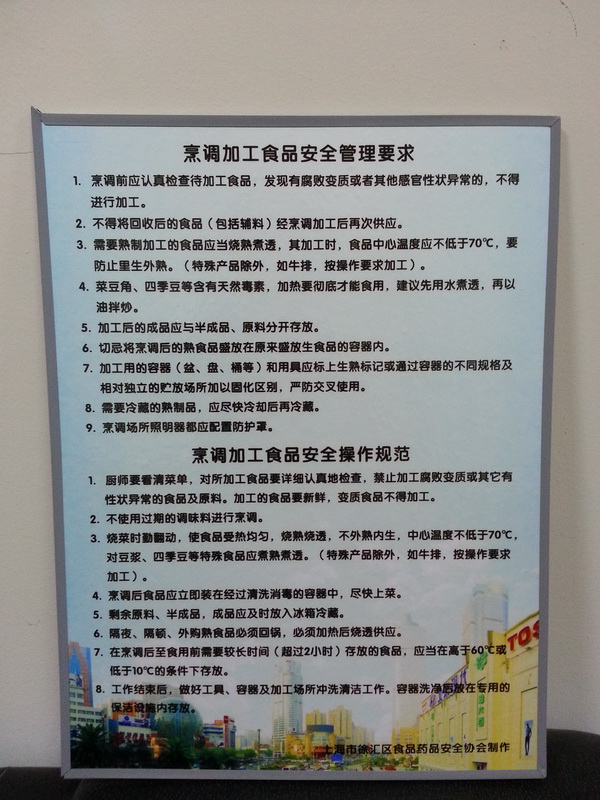 烹调加工食品安全管理要求
1. 烹调前应认真检查待加工食品，发现有腐败变质或者其他感官性状异常的，不得
进行加工。
2. 不得将回收后的食品（包括辅料）经烹调加工后再次供应。
3. 需要熟制加工的食品应当烧熟煮透，其加工时，食品中心温度应不低于70℃，要
防止里生外熟。（特殊产品除外，如牛排，按操作要求加工）。
4. 菜豆角、四季豆等含有天然毒素，加热要彻底才能食用，建议先用水煮透，再以
油拌炒。
5. 加工后的成品应与半成品、原料分开存放。
6. 切忌将烹调后的熟食品盛放在原来盛放生食品的容器内。
7. 加工用的容器（盆、盘、桶等）和用具应标上生熟标记或通过容器的不同规格及
相对独立的贮放场所加以固化区别，严防交叉使用。
8. 需要冷藏的熟制品，应尽快冷却后再冷藏。
9. 烹调场所照明器都应配置防护罩。
烹调加工食品安全操作规范
1. 厨师要看清菜单，对所加工食品要详细认真地检查，禁止加工腐败变质或其它有
性状异常的食品及原料。加工的食品要新鲜，变质食品不得加工。
2. 不使用过期的调味料进行烹调。
3. 烧菜时勤翻动，使食品受热均匀，烧熟烧透，不外熟内生，中心温度不低于70℃，
对豆浆、四季豆等特殊食品应煮熟煮透。（特殊产品除外，如牛排，按操作要求
加工）。
4. 烹调后食品应立即装在经过清洗消毒的容器中，尽快上菜。
5. 剩余原料、半成品，成品应及时放入冰箱冷藏。
6. 隔夜、隔顿、外购熟食品必须回锅，必须加热后烧透供应。
7. 在烹调后至食用前需要较长时间（超过2小时）存放的食品，应当在高于60℃或
低于10℃的条件下存放。
8. 工作结束后，做好工具、容器及加工场所冲洗清洁工作。容器洗净后放在专用的
保洁设施内存放。
TOS
上海市徐汇区食品药品安全协会制作